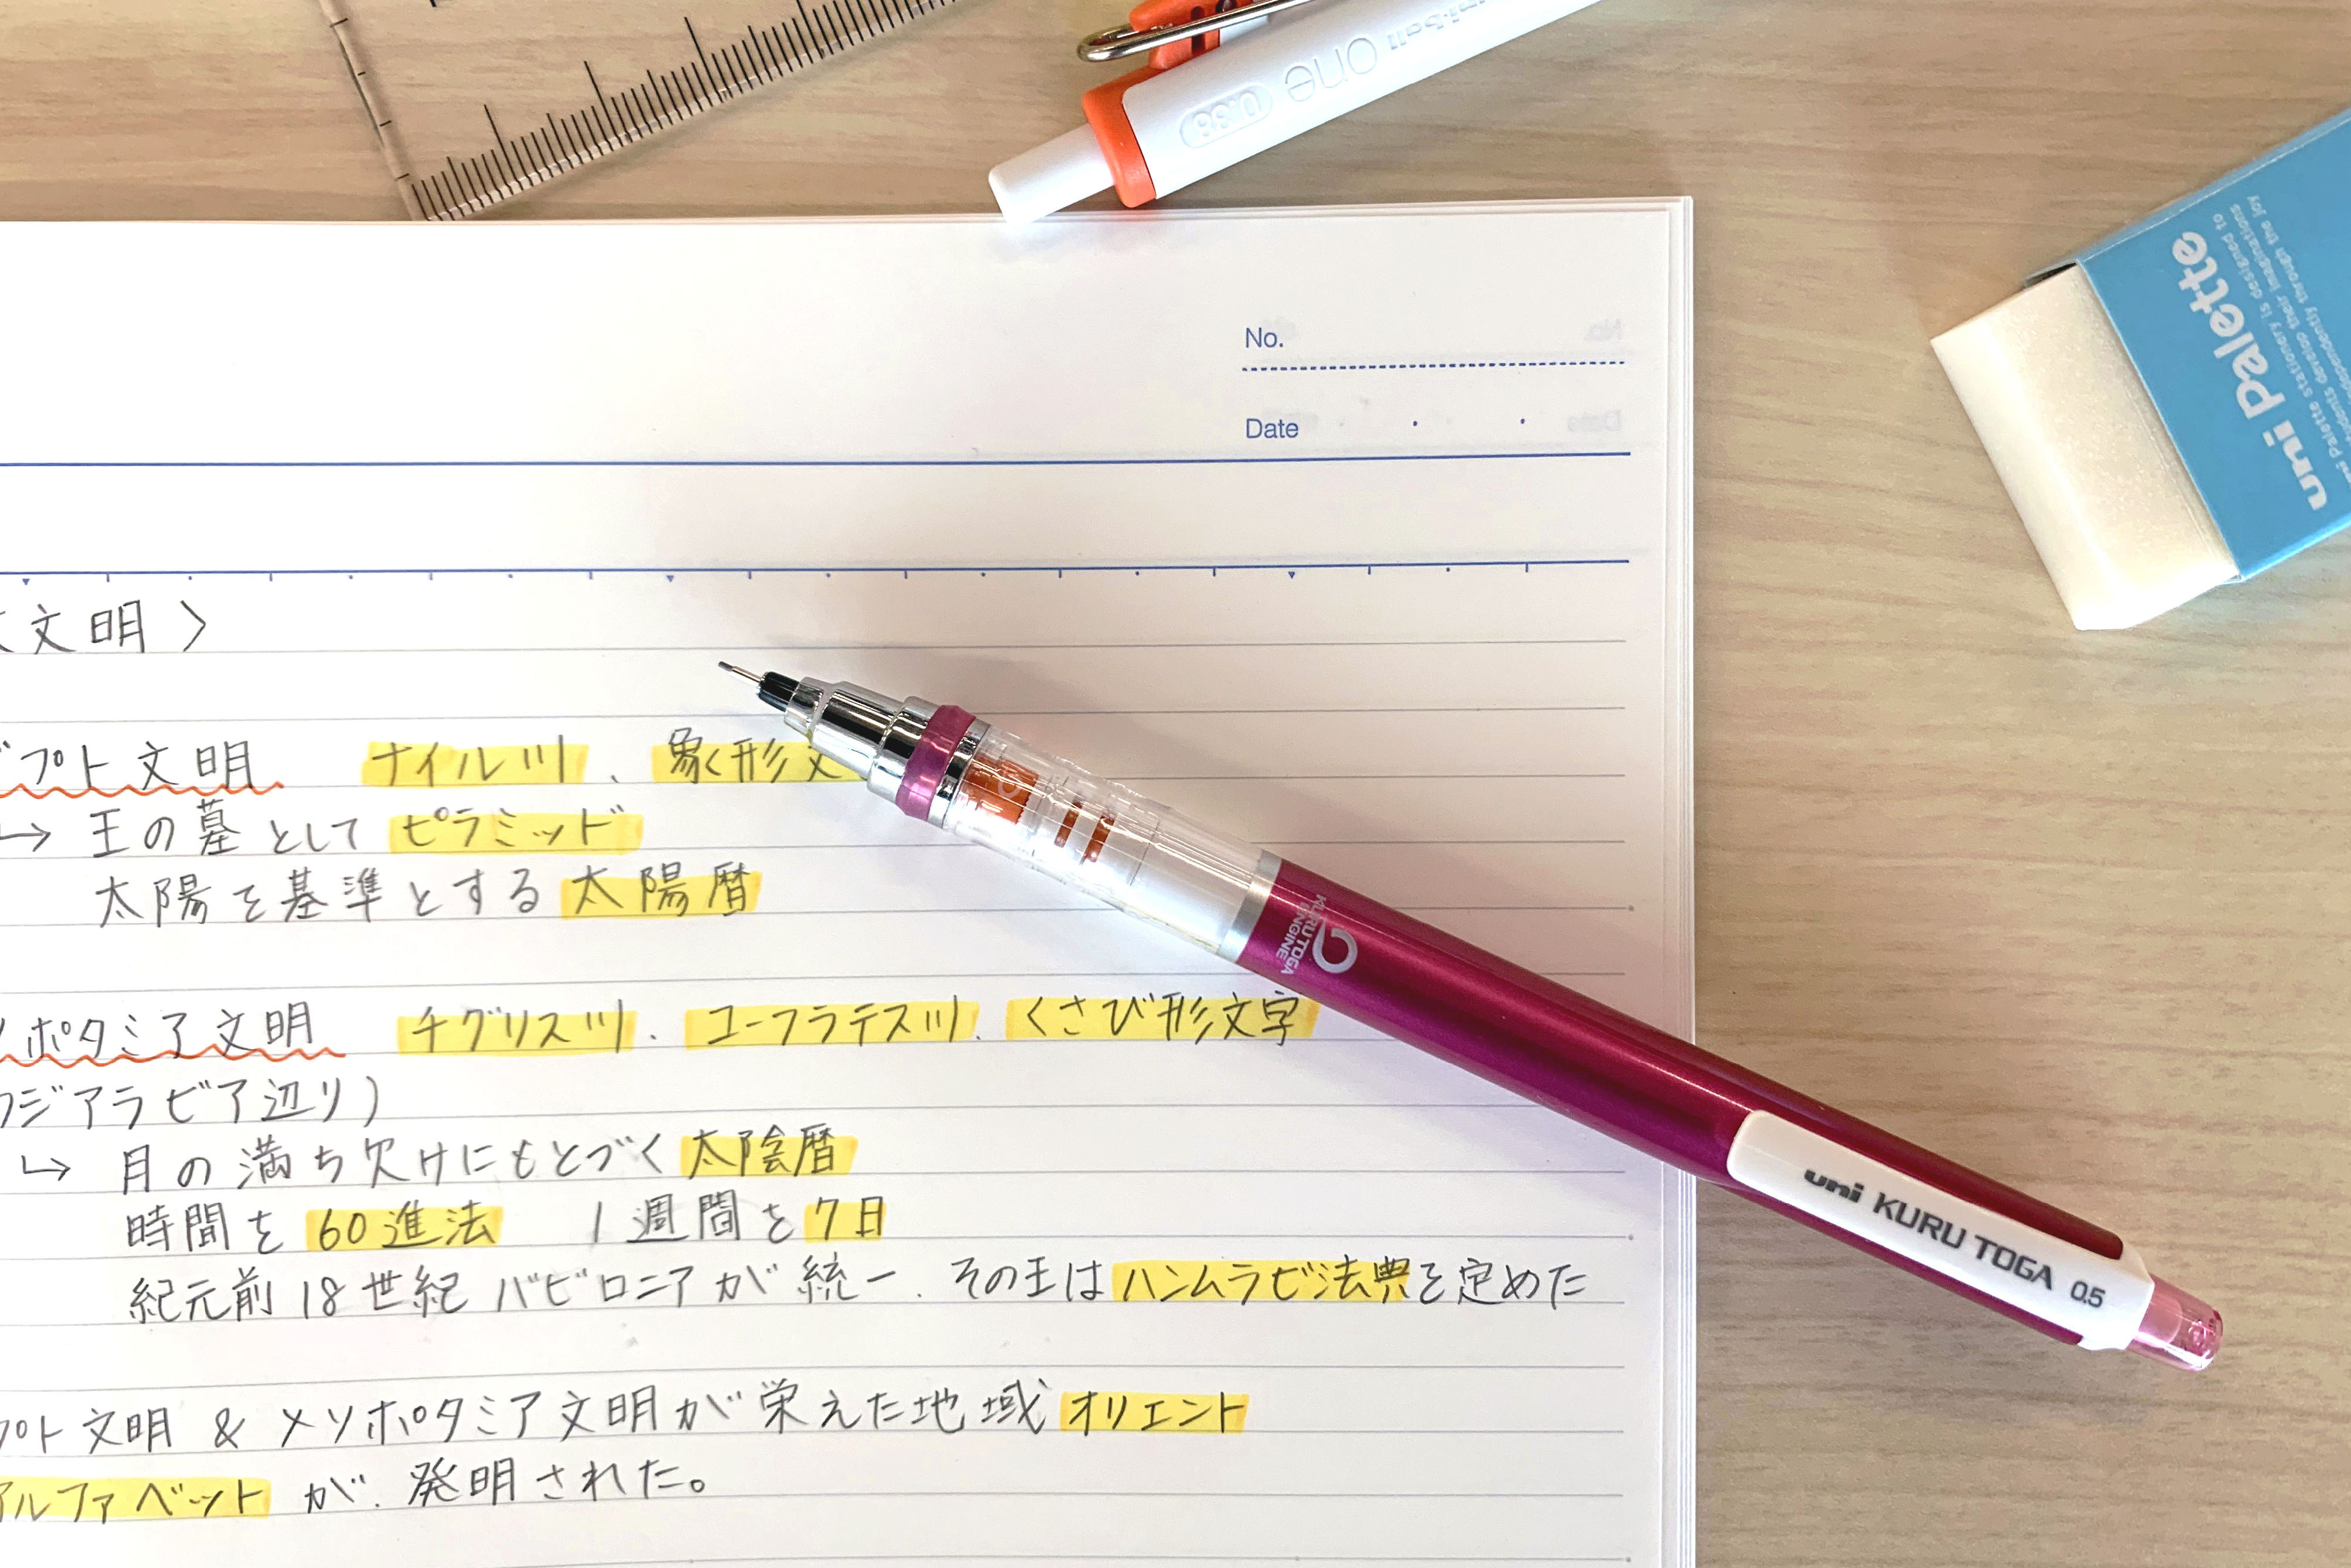 uni-ball one
0.38
uni Palette
uni Palette stationery is designed to
students develop their imaginations
independently through the joy
No.
Date
文明〉
プト文明 ナイル川、象形文
→ 王の墓として ピラミッド
太陽を基準とする 太陽暦
ポタミア文明 チグリス川、ユーフラテス川、くさび形文字
ジアラビア辺り)
→ 月の満ち欠けにもとづく 太陰暦
時間を 60進法 1週間を 7日
紀元前18世紀 バビロニアが統一、その王は ハンムラビ法典を定めた
プト文明 & メソポタミア文明が栄えた地域 オリエント
アルファベット が、発明された。
KURU TOGA
ENGINE
uni KURU TOGA 0.5